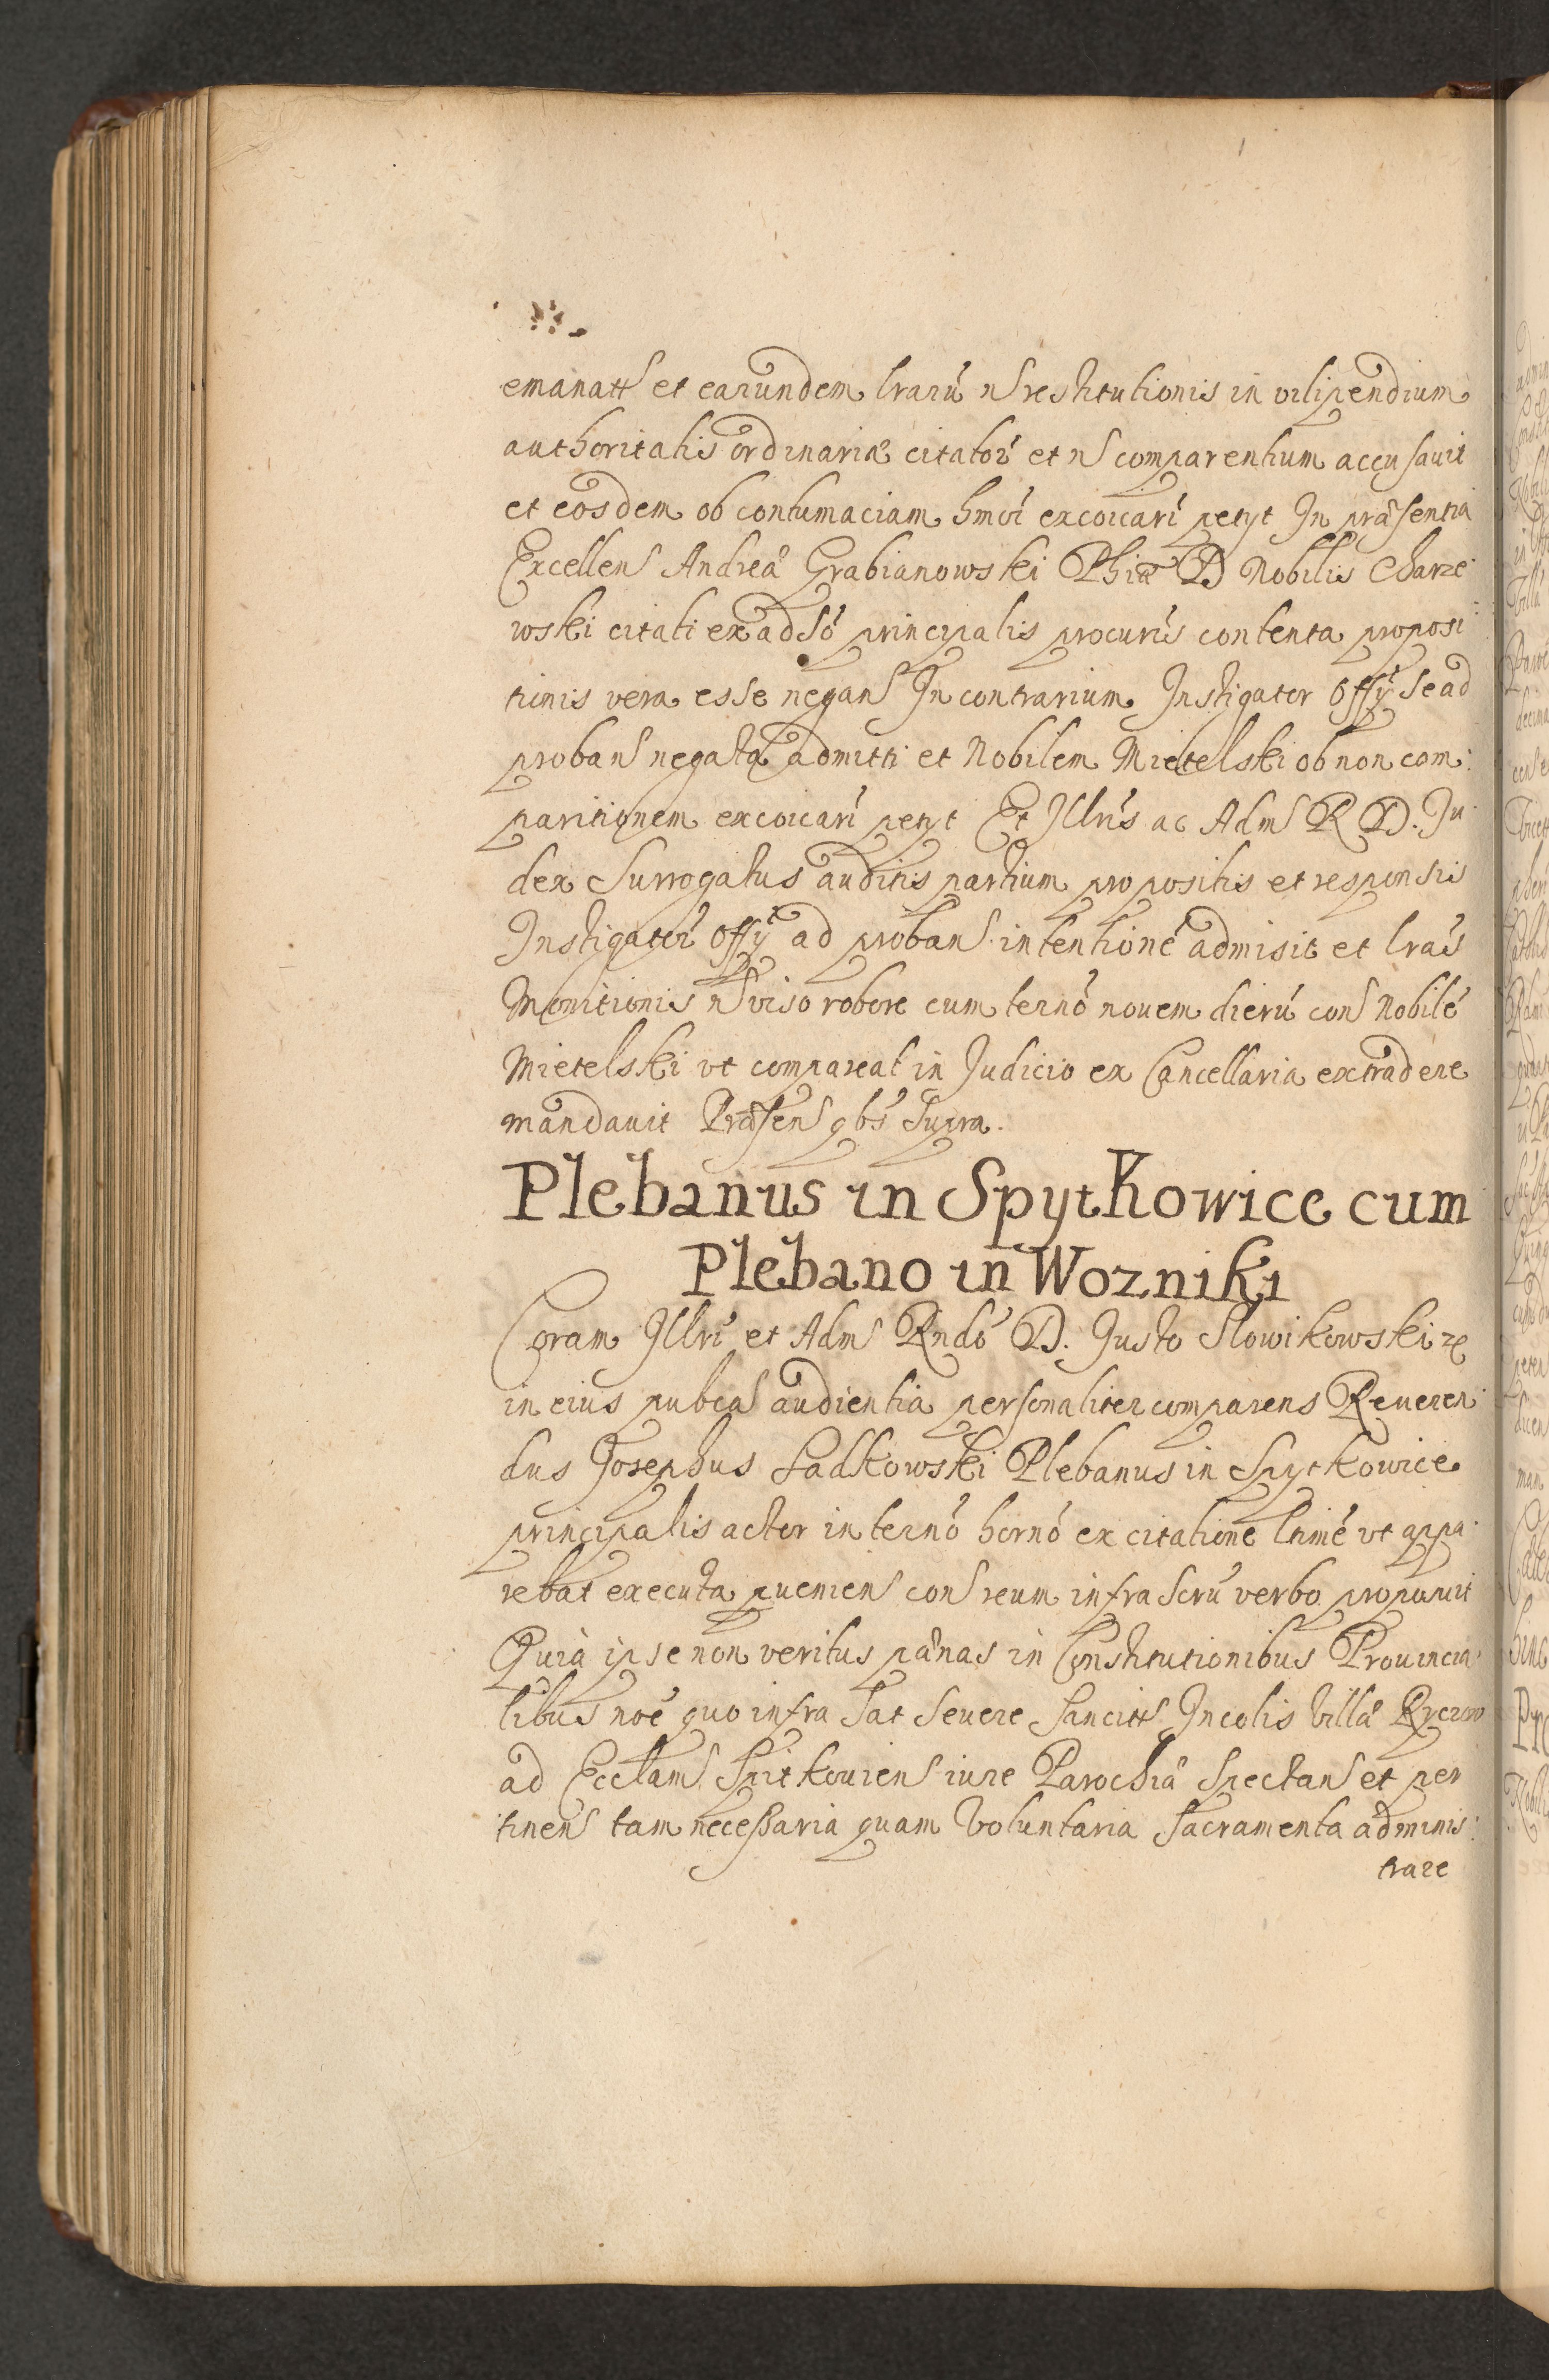 emanatt et earundem lrarũ nẽ restitutionis in vilipendium
authoritatis ordinariæ citator̃ et nẽ comparentium accusauit
et eosdem ob contumaciam hmoĩ excoicarĩ petyt In præsentia
Excellen Andreæ Grabianowski Phiæ D Nobilis Charze:
wski citati ex adsõ principalis procurĩs contenta proposi
tionis vera esse negan In contrarium Instigator Offÿ Se ad
proban negata admitti et Nobilem Mietelski ob non com:
paritionem excoicarĩ petyt Et Jllrĩs ac Adm R D. Ju
dex Surrogatus auditis partium propositis et responsis
Instigatorĩ Offÿ ad proban intentionẽ admisit et lrãs
Monitionis viso robore cum termõ nouem dierũ con Nobilẽ
Mietelski vt compareat in Judicio ex Cancellaria extradere
mandauit Præsen qbs Supra.
Plebanus in Spytkowice cum
Plebano in Wozniki
Coram Jllrĩ et Adm Rndõ D. Justo Slowikowski
in eius pubca audientia personaliter comparens Reueren
dus Josephus Ladkowski Plebanus in Spytkowice
principalis actor in termõ hornõ ex citatione ltimẽ vt appa:
rebat executa pueniens con reum infra scrũ verbo proposuit
Quia ipse non veritus pænas in Constitutionibus Prouincia:
libus noẽ quo infra Sat Seuere Sancitt Incolis Villæ
ad Ecclam Spitkouien iure Parochiæ Spectan et per
tinen tam necessaria quam Voluntaria Sacramenta adminis:
trare